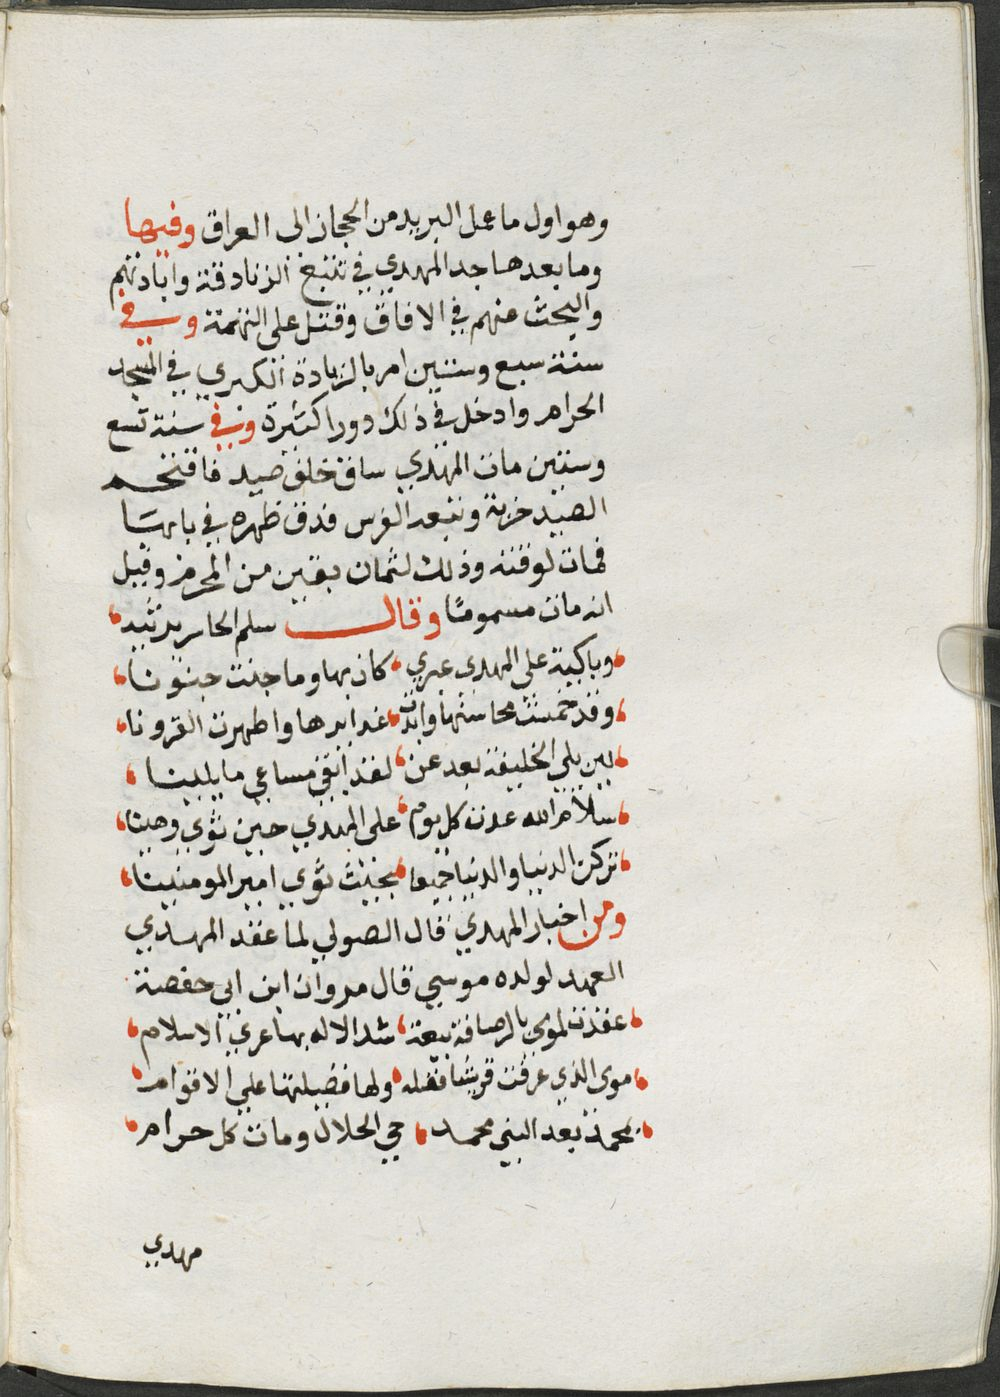 وهو اول ما عمل البريد من الحجاز الى العراق وفيها
وما بعدها جد المهدي في تتبع الزنادقة وابادتهم
والبحث عنهم في الافاق وقتل على التهمة وفي
سنة سبع وستين امر بالزيادة الكبري في المسجد
الحرام وادخل في ذلك دورا كثيرة وفي سنة تسع
وستين مات المهدي ساق خلف صيد فاقتحم
الصيد خربة وتبعه الفرس فدق ظهره في بابها
فمات لوقته وذلك لثمان بقين من المحرم وقيل
انه مات مسموما وقال سلم الخاسر يرثيه
وباكية على المهدى عبري كان بها وما جنت جنونا
وقد خمشت محاسنها وابدت غدايرها واظهرت القرونا
لين بلي الخليفة بعد عز لقد ابقي مساعي ما بلينا
سلام الله عدت كل يوم على المهدي حين ثوي رهينا
تركن الدنيا والدنيا جميعا بحيث ثوي امير المومنينا
ومن اخبار المهدي قال الصولي لما عقد المهدي
العهد لولده موسي قال مروان ابن ابي حفصة
عقدت لموسى بالرصافة بيعة شد الاله بها عري الاسلام
موسى الذي عرفت قريش فضله ولها فضيلتها علي الاقوام
بمحمد بعد النبي محمد حي الحلال ومات كل حرام
مهدي